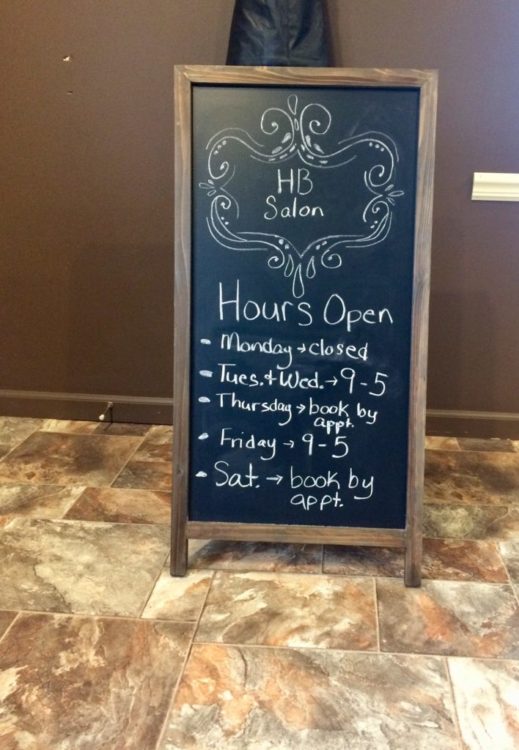 HB
Salon
Hours Open
- Monday → closed
- Tues. & Wed. → 9 - 5
- Thursday → book by
appt.
- Friday → 9 - 5
- Sat. → book by
appt.